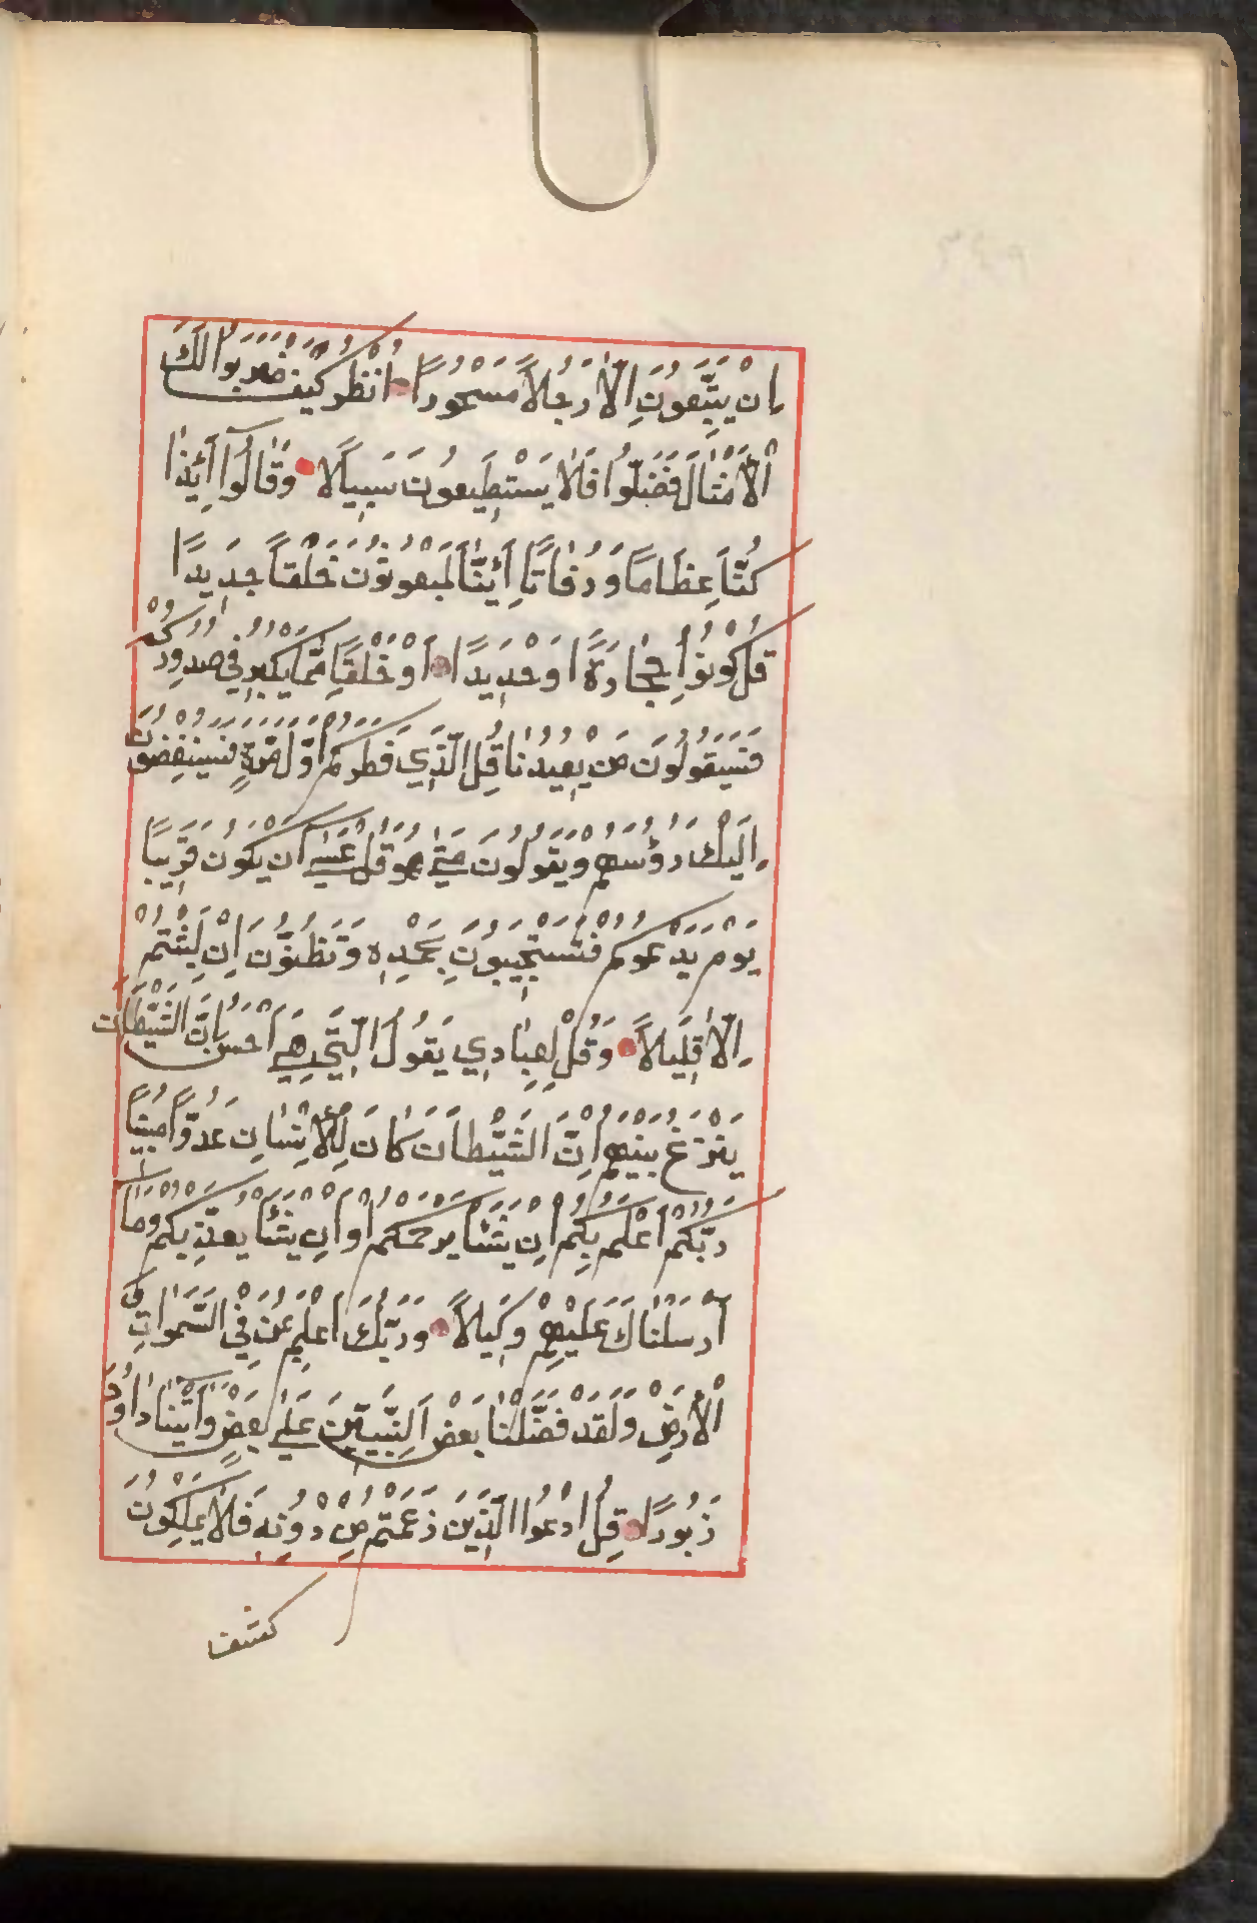 اِنْ يَتَّبِعُونَ اِلَّا رَجُلًا مَسْحُورًا اُنْظُرْ كَيْفَ ضَرَبُوا لَكَ
الْأَمْثَالَ فَضَلُّوا فَلَا يَسْتَطِيعُونَ سَبِيلًا وَقَالُوا أَئِذَا
كُنَّا عِظَامًا وَرُفَاتًا أَئِنَّا لَمَبْعُوثُونَ خَلْقًا جَدِيدًا
قُلْ كُونُوا حِجَارَةً اَوْ حَدِيدًا اَوْ خَلْقًا مِمَّا يَكْبُرُ فِي صُدُورِكُمْ
فَسَيَقُولُونَ مَنْ يُعِيدُنَا قُلِ الَّذِي فَطَرَكُمْ اَوَّلَ مَرَّةٍ فَسَيُنْغِضُونَ
اِلَيْكَ رُؤُسَهُمْ وَيَقُولُونَ مَتَى هُوَ قُلْ عَسَى اَنْ يَكُونَ قَرِيبًا
يَوْمَ يَدْعُوكُمْ فَتَسْتَجِيبُونَ بِحَمْدِهِ وَتَظُنُّونَ اِنْ لَبِثْتُمْ
اِلَّا قَلِيلًا وَقُلْ لِعِبَادِي يَقُولُ الَّتِي هِيَ اَحْسَنُ اِنَّ الشَّيْطَانَ
يَنْزَغُ بَيْنَهُمْ اِنَّ الشَّيْطَانَ كَانَ لِلْأِنْسَانِ عَدُوًّا مُبِينًا
رَبُّكُمْ اَعْلَمُ بِكُمْ اِنْ يَشَأْ يَرْحَمْكُمْ اَوْ اِنْ يَشَأْ يُعَذِّبْكُمْ وَمَا
أَرْسَلْنَاكَ عَلَيْهِمْ وَكِيلًا وَرَبُّكَ اَعْلَمُ بِمَنْ فِي السَّمٰوَاتِ وَ
الْأَرْضِ وَلَقَدْ فَضَّلْنَا بَعْضَ النَّبِيِّينَ عَلَى بَعْضٍ وَاٰتَيْنَا دَاوُدَ
زَبُورًا قُلِ ادْعُوا الَّذِينَ زَعَمْتُمْ مِنْ دُونِهِ فَلَا يَمْلِكُونَ
كشف